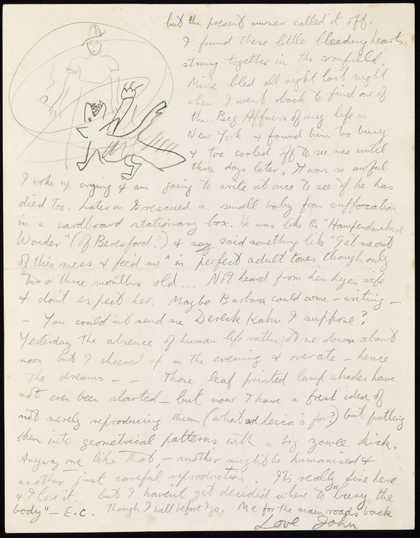 but the present owner called it off.
I found these little bleeding hearts
strung together in the cornfield.
Mine bled all night last night
when I went back to find one of
the Big Affairs of my life in
New York & found him too busy
& too cooled off to see me until
three days later. It was so awful
I woke up crying & am going to write at once to see if he has
died too. Later on I rescued a small baby from suffocation
in a cardboard stationary box. It was like the "
Wonder" (of Beresford?) & said something like "get me out
of this mess & feed me" in perfect adult tones though only
two or three months old... Not heard from her
& don't expect her. Maybe Barbara could come - writing -
- You could not send me Derek Kahn I suppose?
Yesterday the absence of human life rather got me down about
noon but I cheered up in the evening & over ate - hence
the dreams - - Those leaf printed lamp shades have
not even been started - but now I have a fresh idea of
not merely reproducing them (what is for?) but putting
them into geometrical patterns with a big
Anyway one like that, - another might be humanised &
another just careful reproduction. It's really fine here
& I love it. but I haven't yet decided where to "bury the
body" - E.C. Though I will before I go. Me for the main road & back
Love John